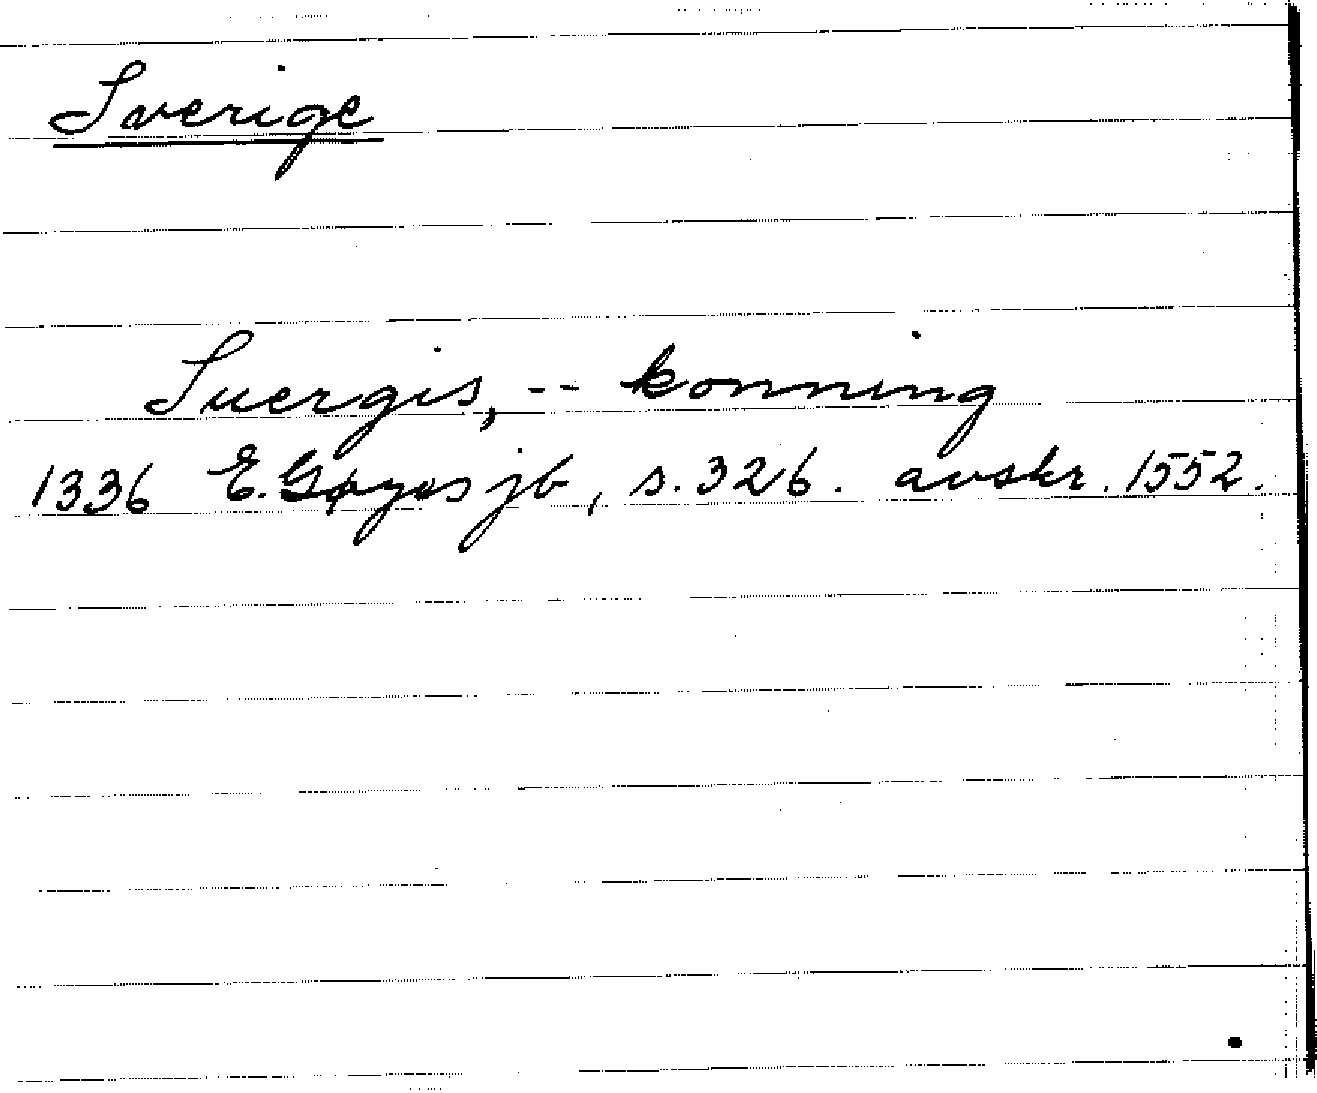 Sverige
Suergis, -- konning
1336 E. Gøyes jb, s. 326. avskr. 1552.